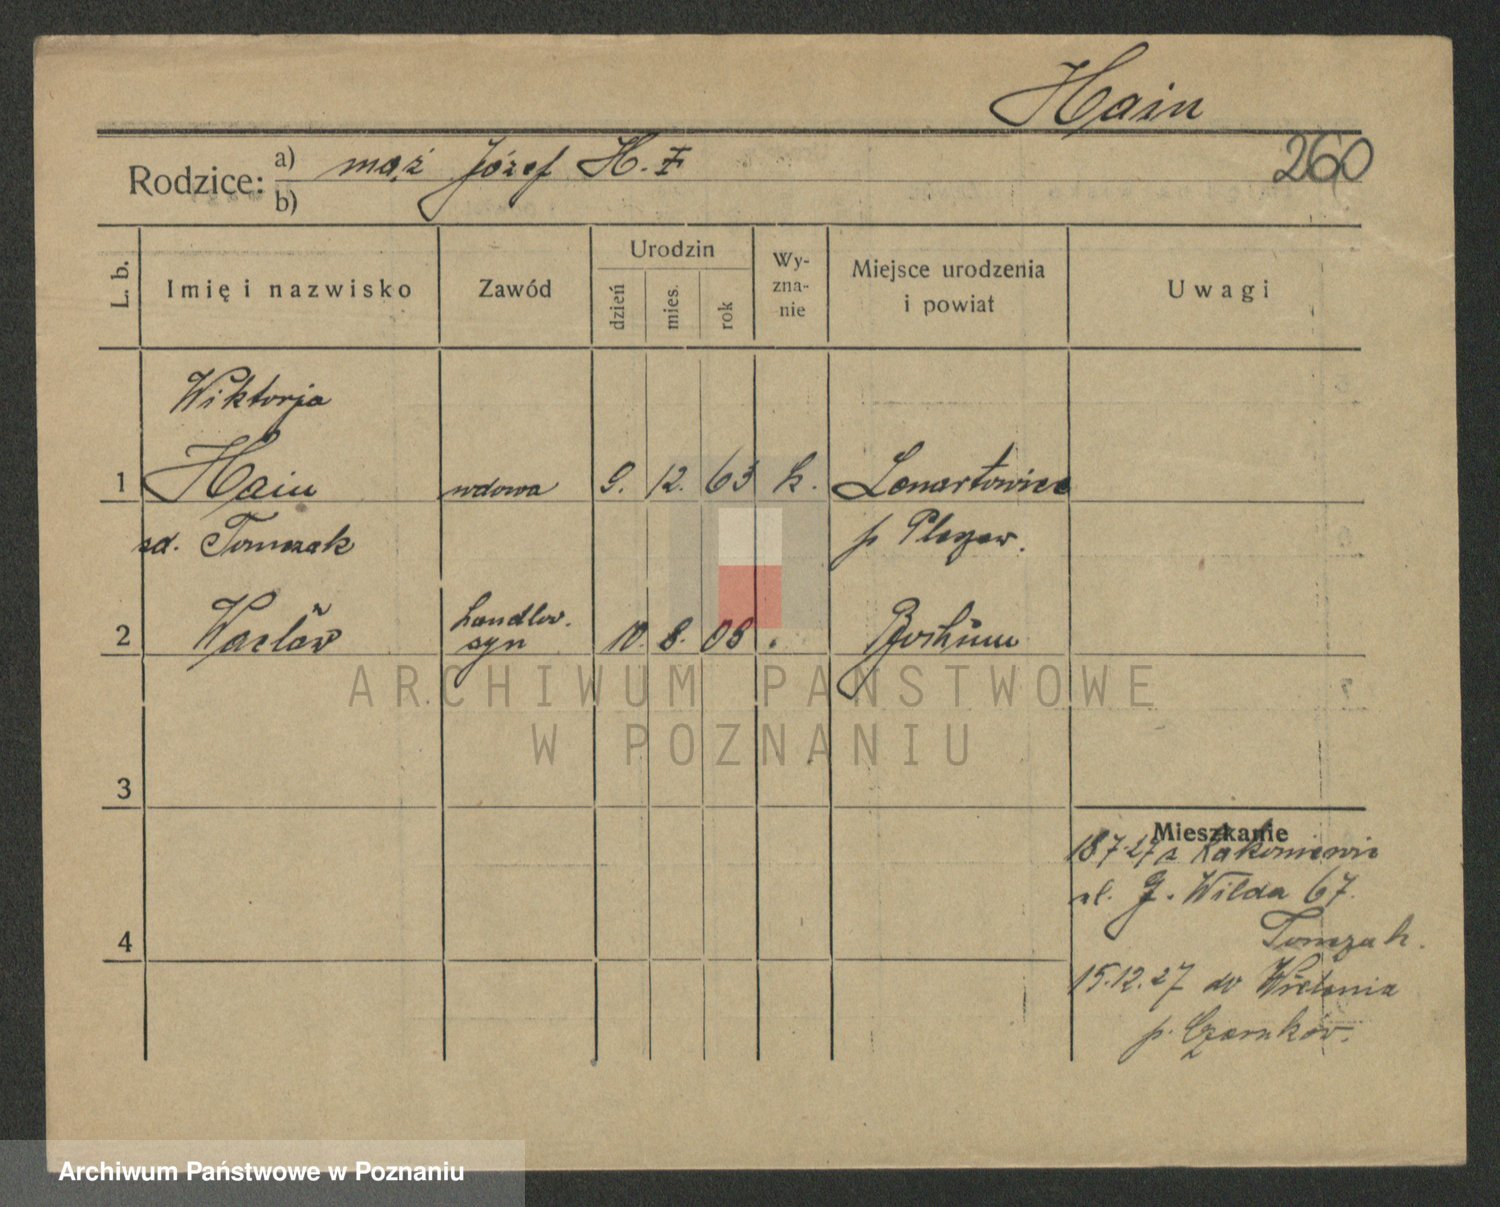 Hain
260
Rodzice: a) mąż Józef H. ✝
b)
L. b. Imię i nazwisko Zawód Urodzin dzień mies. rok Wy-zna-nie Miejsce urodzenia i powiat Uwagi
Wiktorja
1 Hain wdowa 9. 12. 63 k. Lenartowice
zd. Tomczak p Pleszew.
2 Wacław handlow. syn 10. 8. 08 Bochum
ARCHIWUM PAŃSTWOWE
W POZNANIU
3
Mieszkanie
18 7.27 z Rakoniewic
ul. G. Wilda 67.
Tomczak.
4
15.12.27 do Wielenia
p. Czarnków.
Archiwum Państwowe w Poznaniu